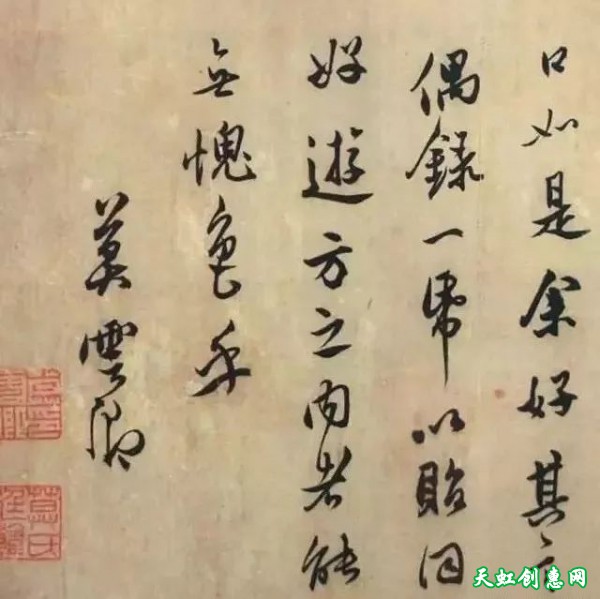 口如是余好其言
偶錄一帋以貽同
好遊方之内者能
無愧色乎
莫雲卿
天虹创惠网